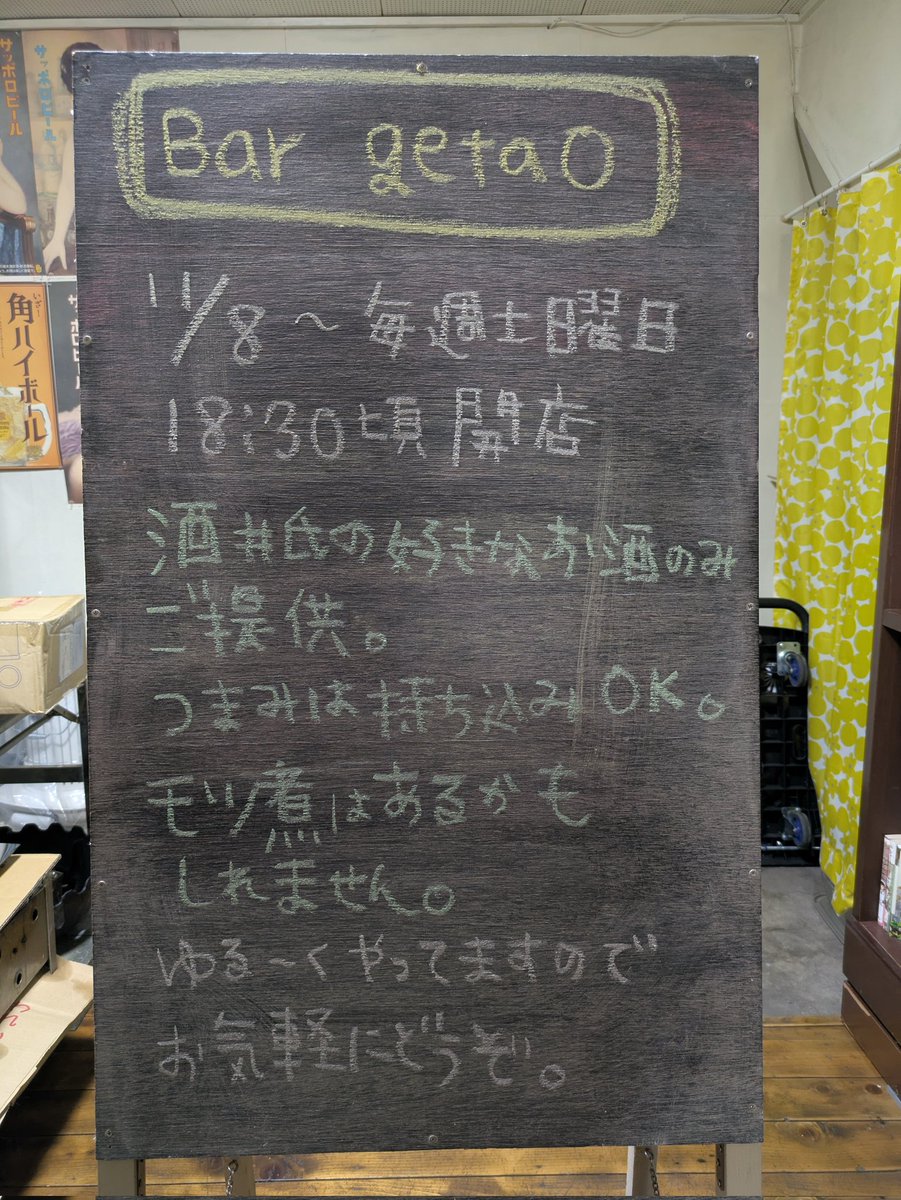 Bar getao
11/8～毎週土曜日
18:30頃開店
酒井氏の好きなお酒のみ
ご提供。
つまみは持ち込みOK。
モツ煮はあるかも
しれません。
ゆる～くやってますので
お気軽にどうぞ。
サッポロビール
サッポロビール
角ハイボール